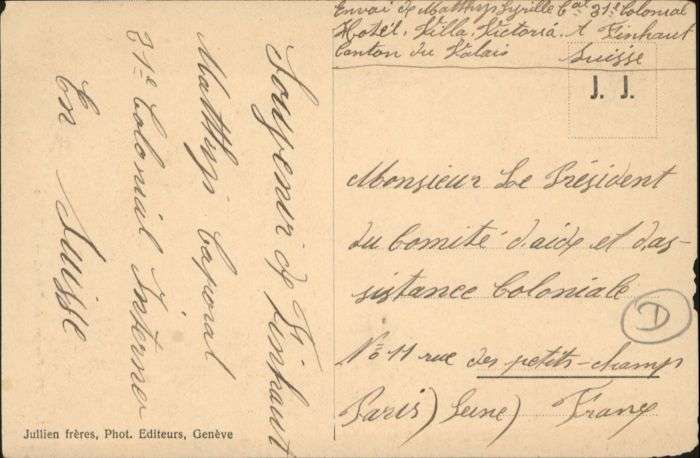 Envoi de Matthys Cyrille Cal 31e Colonial
Hotel, Villa, Victoria, A Finhaut
Canton du Valais Suisse
J. J.
Monsieur Le Président
du Comité d'aide et d'as-
sistance Coloniale
D
No 11 rue des petits-champs
Paris) Seine) France
Souvenir de Finhaut
Matthys Caporal
31e Colonial Interné
En Suisse
Jullien frères, Phot. Editeurs, Genève